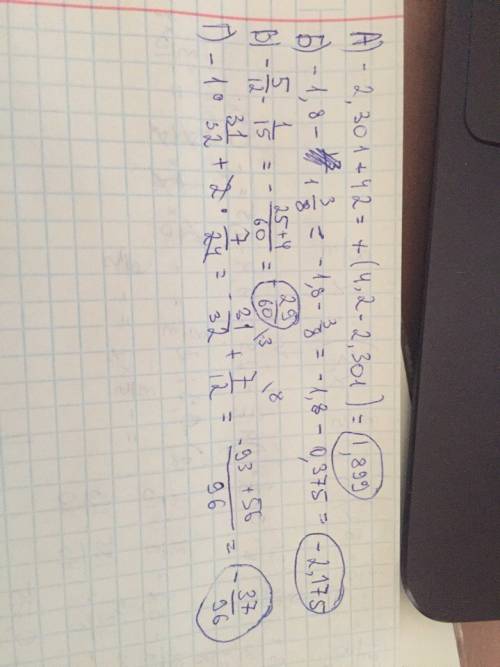 А) - 2,301 + 42 = + (4,2 - 2,301) = 1,899
Б) - 1,8 - 1 3/8 = - 1,8 - 3/8 = - 1,8 - 0,375 = - 2,175
В) - 5/12 - 1/15 = - 25+4/60 = 29/60
Г) - 1 · 31/32 + 2 · 7/24 = - 31/32 \3 + 7/12 \8 = -93 + 56/96 = - 37/96